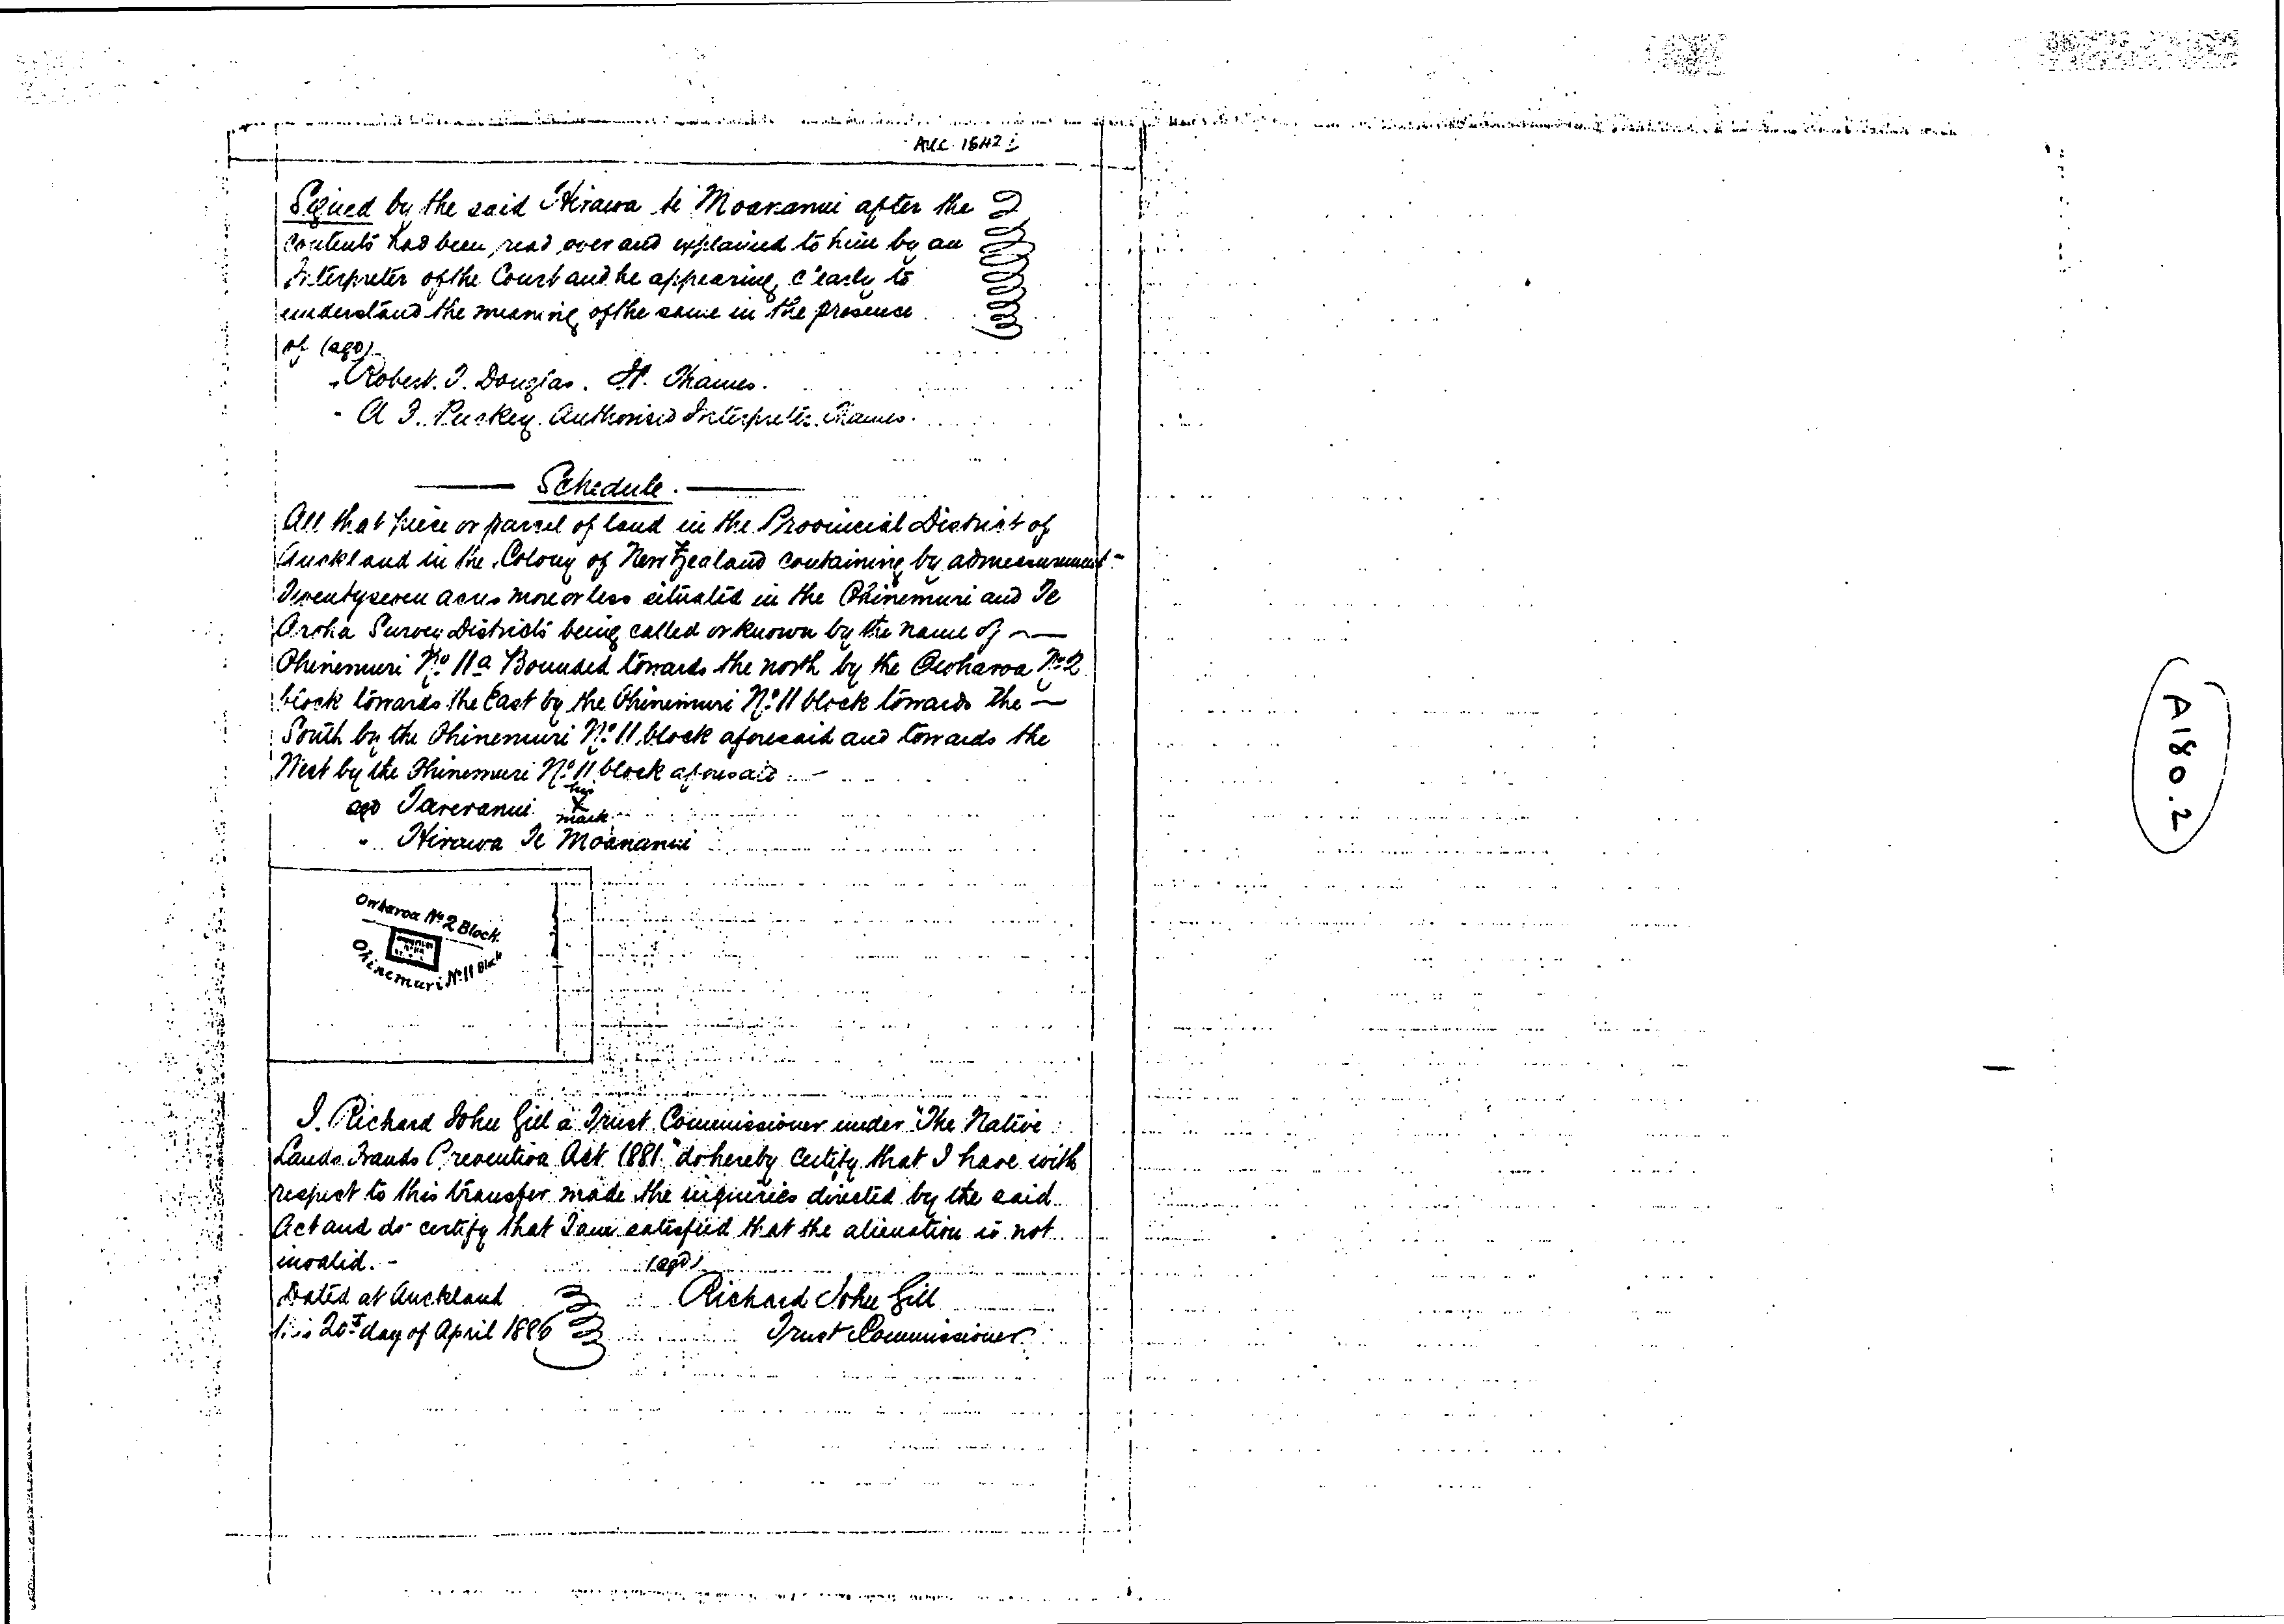 AUC 1542i
Signed by the said Hirawa te Moananui after the
contents had been read over and explained to him by an
Interpreter of the Court and he appearing clearly to
understand the meaning of the same in the presence
of (sgd)
" Robert. T. Douglas. Thames.
" A J. Puckey. Authorised Interpreter. Thames.
Schedule.
All that piece or parcel of land in the Provincial District of
Auckland in the Colony of New Zealand containing by admeasurement
Twentyseven acres more or less situated in the Ohinemuri and Te
Aroha Survey Districts being called or known by the name of
Ohinemuri No. 11a Bounded towards the north by the Owharoa No. 2
block towards the East by the Ohinemuri No. 11 block towards the
South by the Ohinemuri No. 11 block aforesaid and towards the
West by the Ohinemuri No. 11 block aforesaid
sgd Tareranui his x mark
" Hirawa Te Moananui
Owharoa No. 2 Block.
Ohinemuri No. 11 Block
I. Richard John Gill a Trust Commissioner under "The Native
Lands Frauds Prevention Act 1881" do hereby certify that I have with
respect to this transfer made the inquiries directed by the said
Act and do certify that I am satisfied that the alienation is not
invalid. -
(sgd)
Dated at Auckland Richard John Gill
this 20th day of April 1886 Trust Commissioner
A180.2